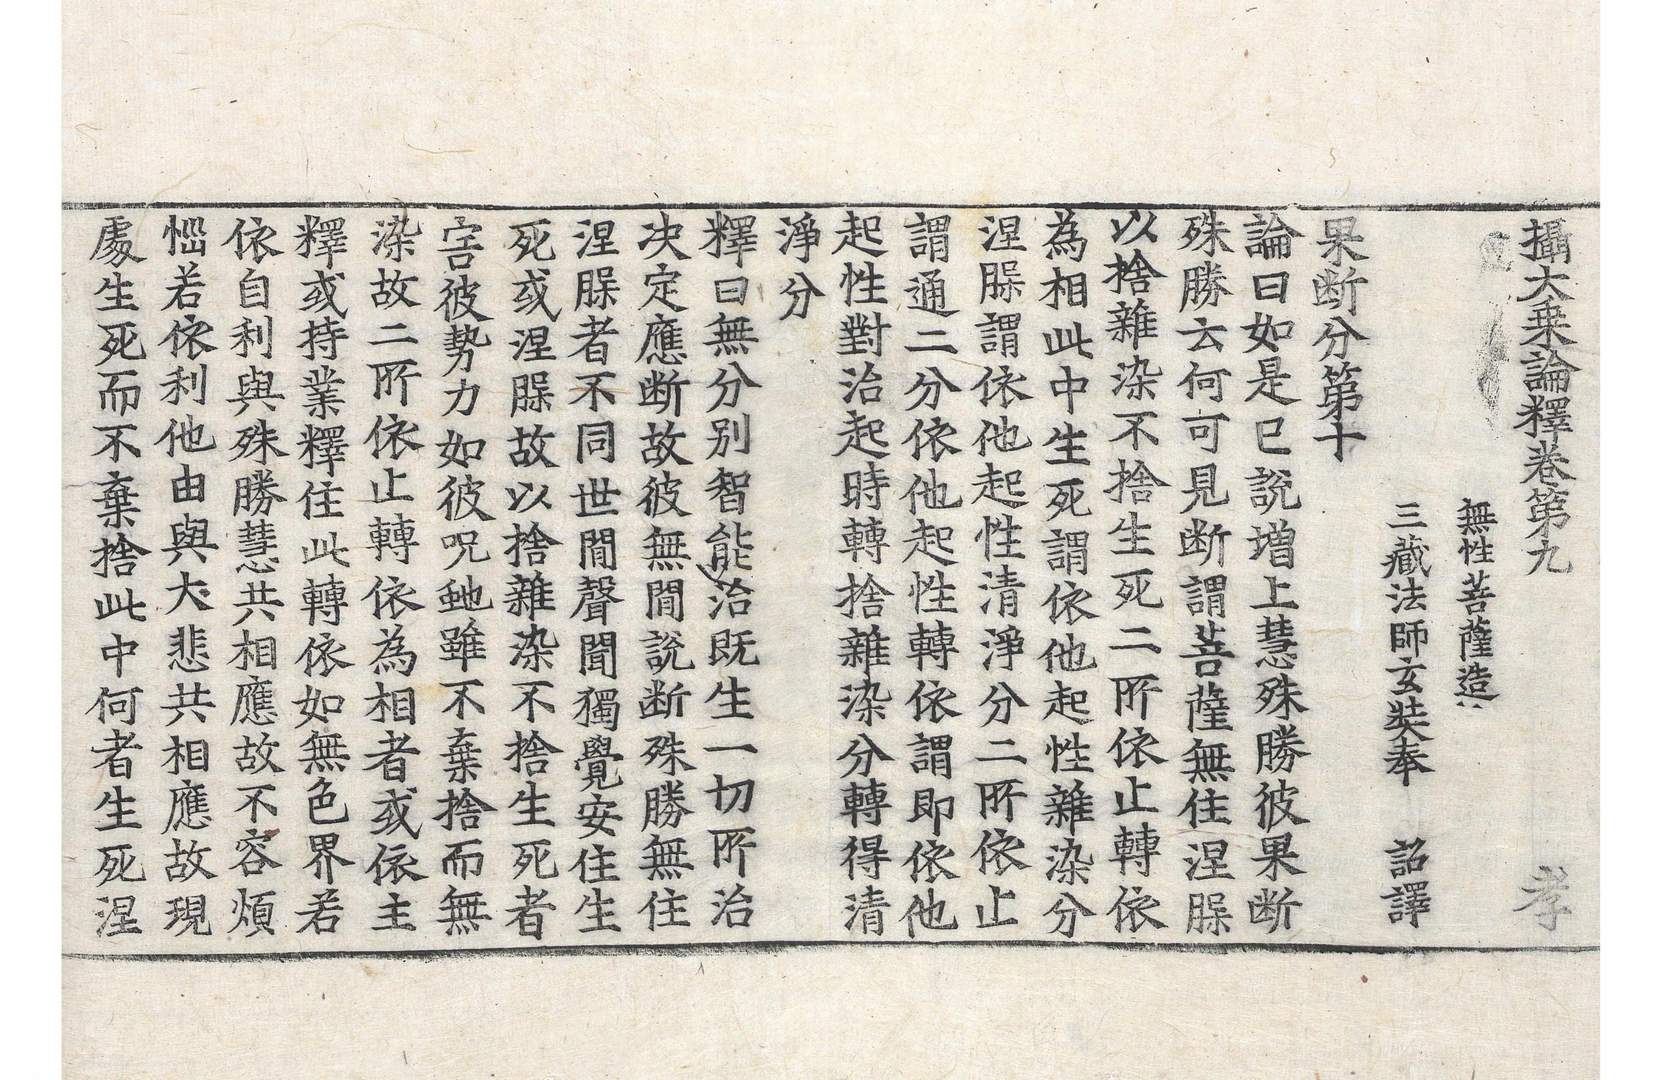 攝大乗論釋卷第九 孝
無性菩薩造
三藏法師玄奘奉 詔譯
果断分第十
論曰如是已說增上慧殊勝彼果断
殊勝云何可見断謂菩薩無住涅槃
以捨雜染不捨生死二所依止轉依
為相此中生死謂依他起性雜染分
涅槃謂依他起性清淨分二所依止
謂通二分依他起性轉依謂即依他
起性對治起時轉捨雜染分轉得清
淨分
釋曰無分別智能治既生一切所治
决定應断故彼無間說断殊勝無住
涅槃者不同世間聲聞獨覺安住生
死或涅槃故以捨雜染不捨生死者
害彼勢力如彼呪虵雖不棄捨而無
染故二所依止轉依為相者或依主
釋或持業釋住此轉依如無色界若
依自利與殊勝慧共相應故不容煩
惱若依利他由與大悲共相應故現
處生死而不棄捨此中何者生死涅